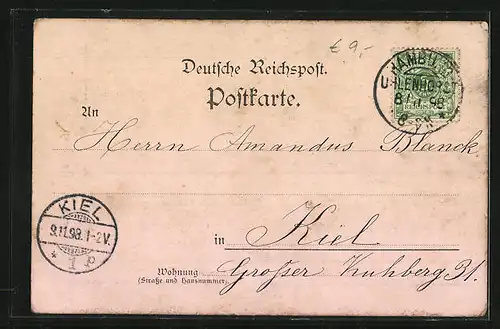 € 9,-
Deutsche Reichspost.
Postkarte.
HAMBURG
UHLENHORST
8/11 98
6-7 N
An
Herrn Amandus Blanck
KIEL
9.11.98.1-2V.
* 1 p
in Kiel
Wohnung Großer Kuhberg 31.
(Straße und Hausnummer)